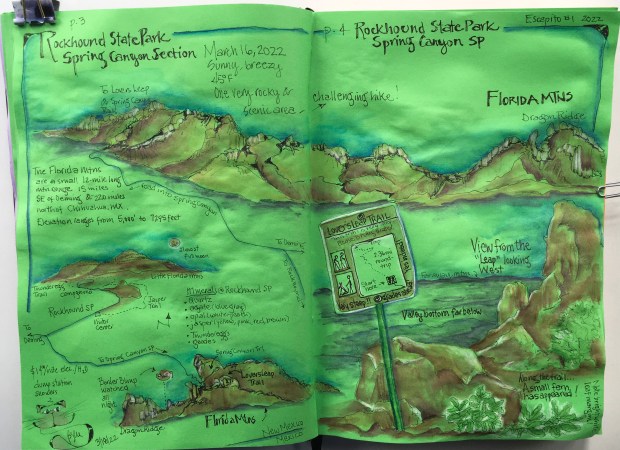 p. 3
Rockhound State Park
Spring Canyon Section
March 16, 2022
Sunny, breezy
One very rocky &
scenic area
challenging hike!
To Lovers Leap
@ Spring
Canyon
The Florida Mtns
are a small 12-mile long
mtn range 15 miles
SE of Deming & 220 miles
north of Chihuahua, MX.
Elevation ranges from 5,000' to 7,295 feet
road into Spring Canyon
To Deming
Almost
full moon
Little Florida Mtns
Thunderegg
Trail
Campground
Jasper
Trail
Rockhound SP
Visitor
Center
N
To
Deming
Minerals @ Rockhound SP
• quartz
• agate (blue-gray)
• opal (white/
• jasper (yellow, pink, red, brown)
• Thundereggs
• geodes
To Spring Canyon SP
Spring Canyon Trl
$14/nite elec./H2O
dump station
Border Blimp
watched
at
night
Lovers Leap
Trail
Dragon Ridge
Florida Mtns
New Mexico
Mexico
2022
p. 4 Rockhound State Park
Spring Canyon SP
Escapito #1 2022
Florida Mtns
Dragon Ridge
Lovers Leap Trail
round
trip
Start
here
View from the
"Leap" looking
West
Valley bottom far below
Along the trail
A small fern
has appeared!